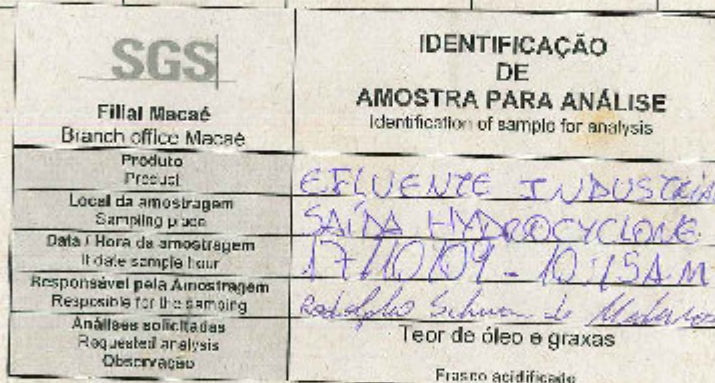 SGS
Filial Macaé
Branch office Macaé
IDENTIFICAÇÃO
DE
AMOSTRA PARA ANÁLISE
Identification of sample for analysis
Produto
Product
EFLUENTE INDUSTRIA
Local da amostragem
Sampling place
SAÍDA HYDROCYCLONE
Data / Hora da amostragem
date sample hour
17/10/09 - 10:15 A.M
Responsável pela Amostragem
Resposible for the samping
Rodolpho
Análises solicitadas
Requested analysis
Teor de óleo e graxas
Observação
Frasco acidificado